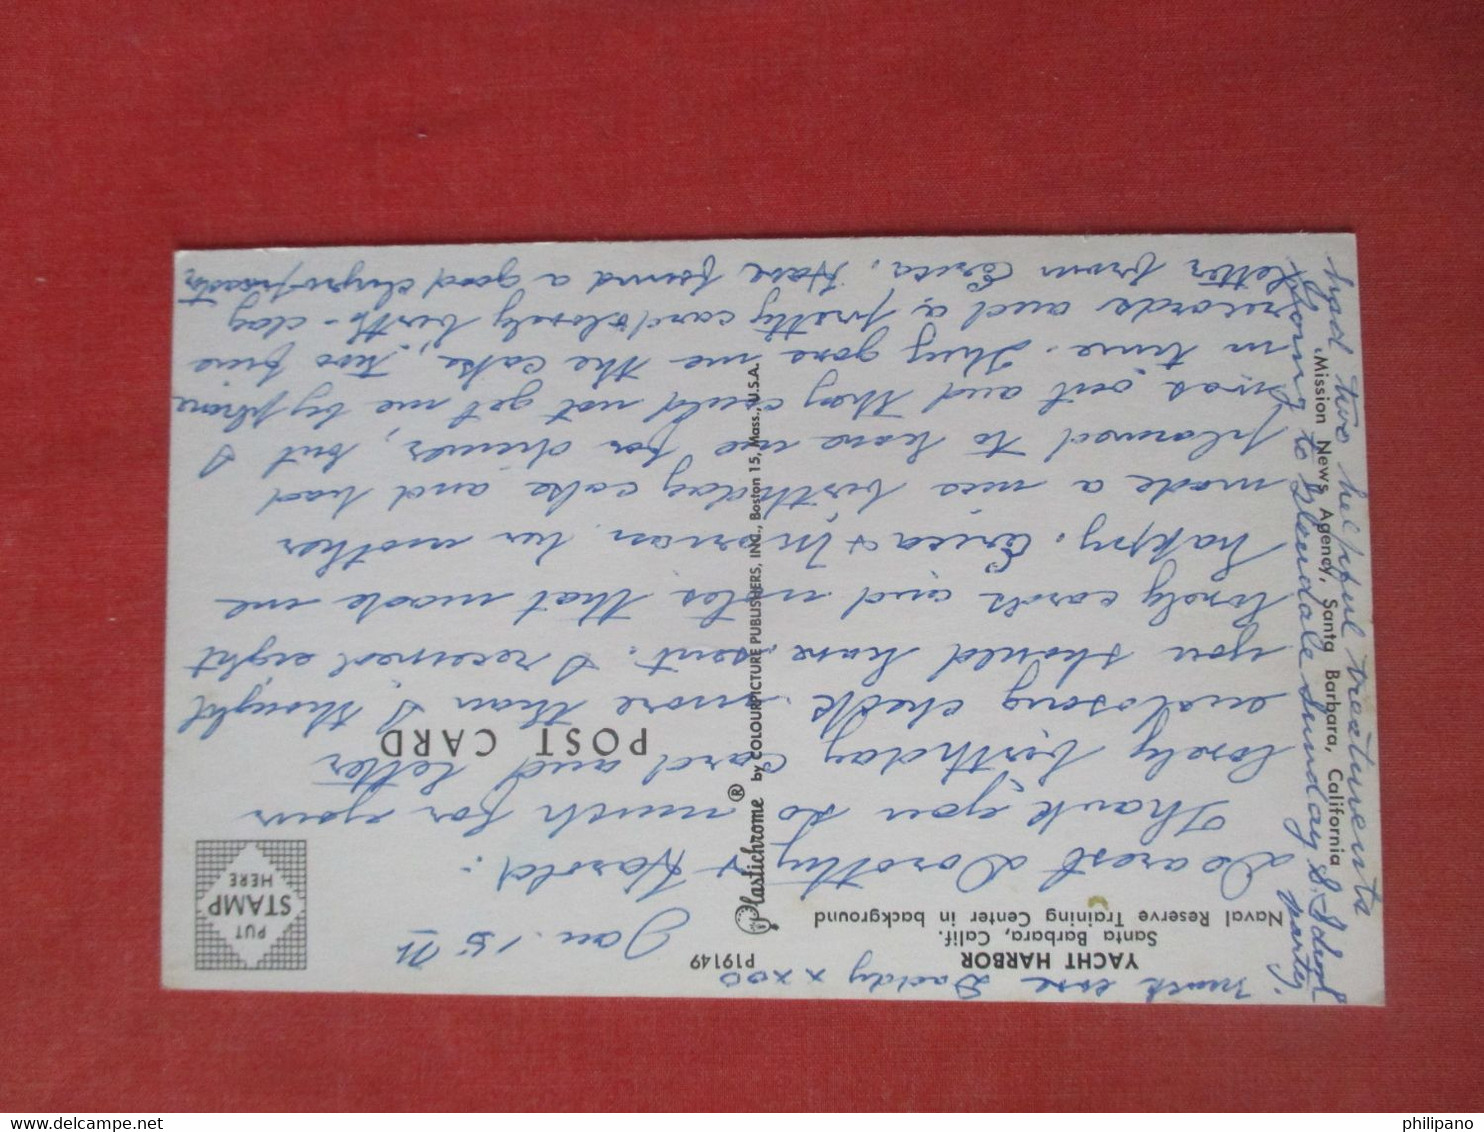 YACHT HARBOR
Santa Barbara, Calif.
Naval Reserve Training Center in background
P19149
PUT
STAMP
HERE
POST CARD
Plastichrome® by COLOURPICTURE PUBLISHERS, INC., Boston 15, Mass., U.S.A.
Mission News Agency, Santa Barbara, California
Jan. 15
Dearest Dorothy + Harold:
Thank you so much for your
lovely birthday card and letter
enclosing check more than I thought
you should have sent. I received eight
lovely cards and notes that made me
happy. Erica + Marian her mother
made a nice birthday cake and had
planned to have me for dinner, but I
was out and they could not get me by phone
in time. They gave me the cake, two fine
records and a pretty card lovely birth-day
letter from Erica. Have found a good chyropractor
had two helpful treatments
Going to Bloudale Sunday
party.
Much love Daddy xxoo
philipano